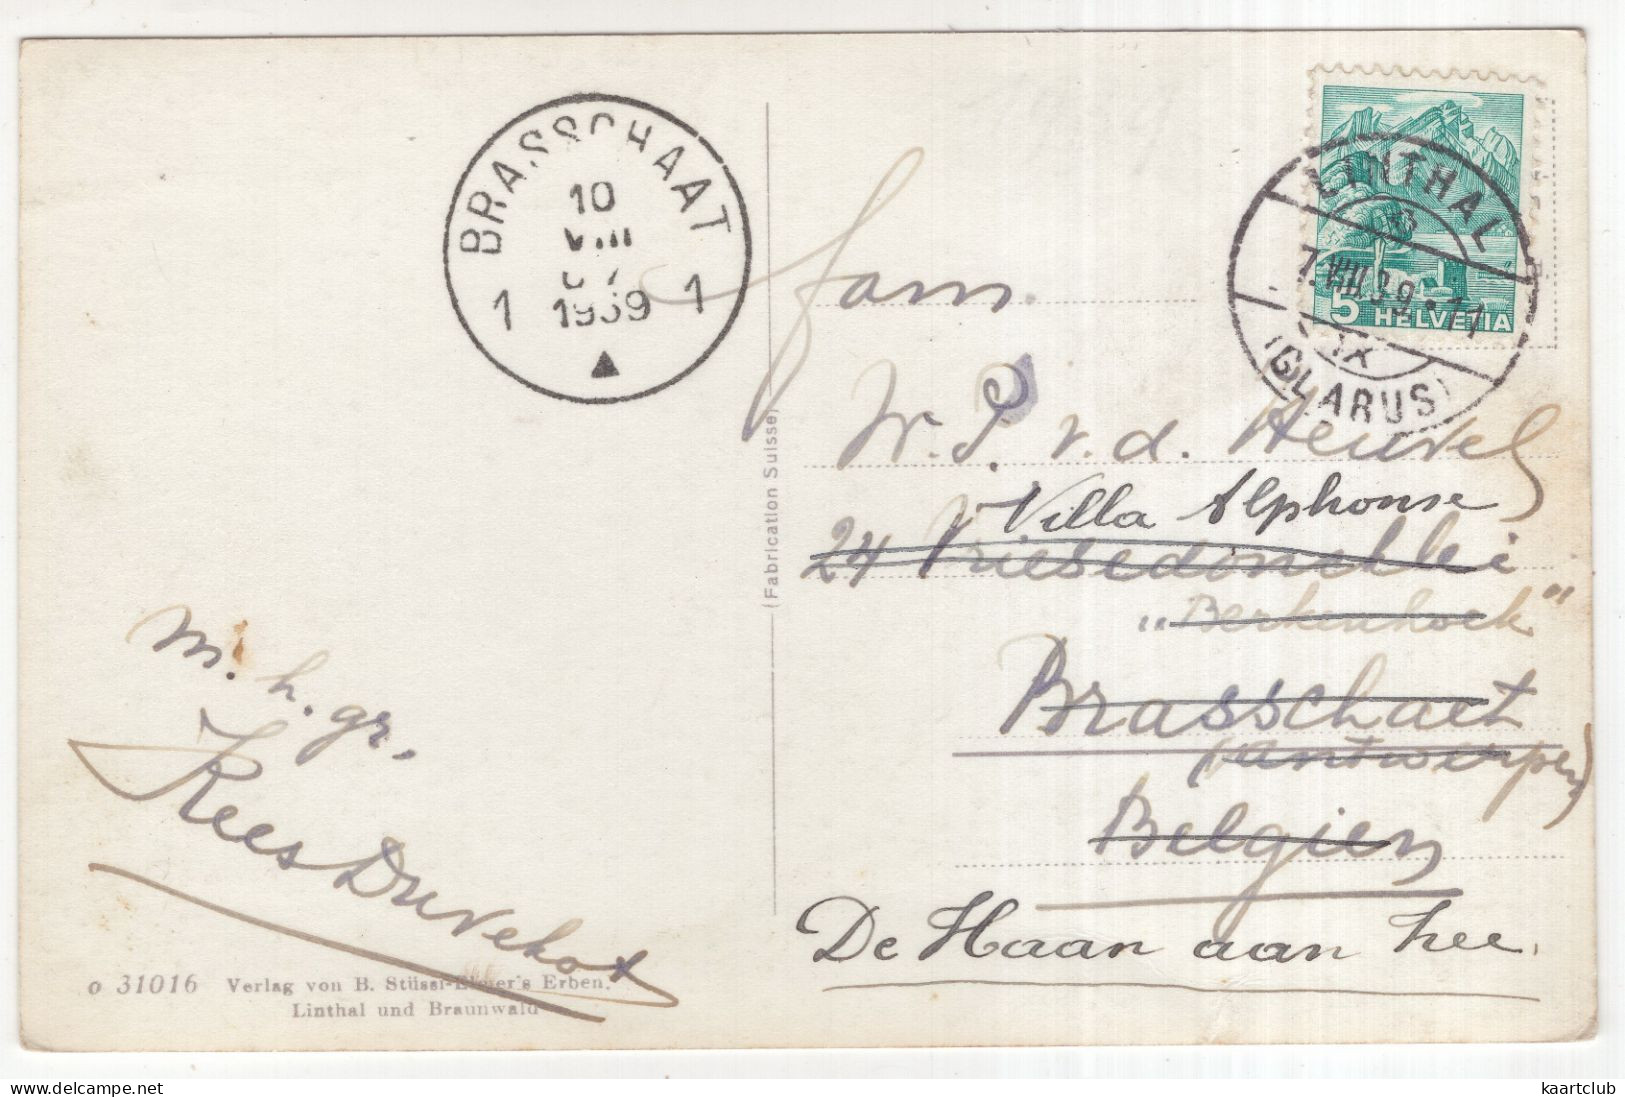 BRASSCHAAT
10
VIII
1939
1 1
HELVETIA
5
LINTHAL
7.VIII.39.11
IX
(GLARUS)
(Fabrication Suisse)
fam.
W. P. v. d. Heuvel
Villa Alphonse
24 Vriesedoncklei
„Berkenhoek"
Brasschaet
(Antwerpen)
Belgien
De Haan aan Zee.
m. h. gr.
Kees Duvekot
o 31016 Verlag von B. Stüssi-Elmer's Erben,
Linthal und Braunwald
kaartclub